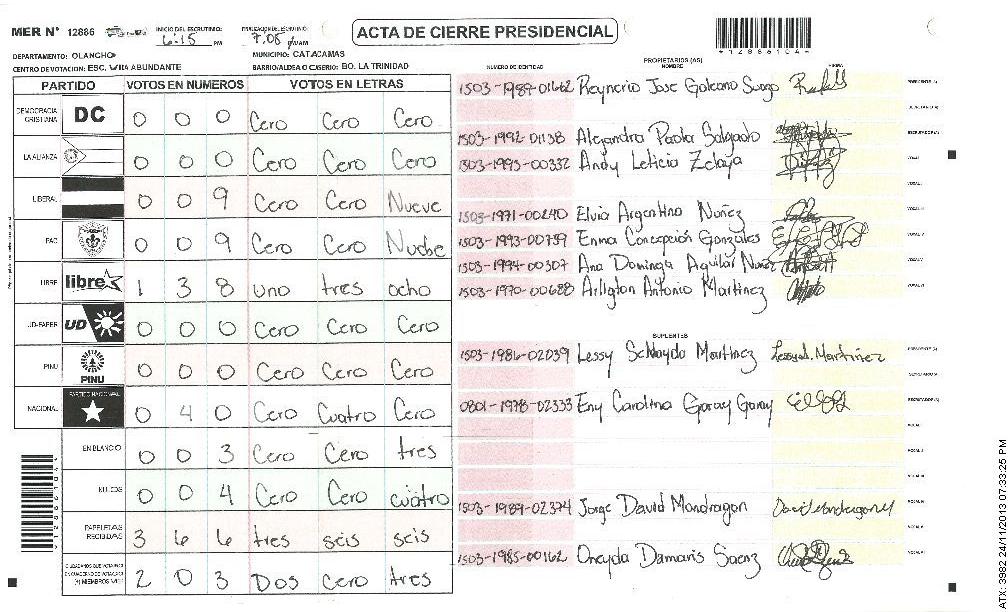 MER N° 12886
INICIO DEL ESCRUTINIO: 6:15 PM
7:08
ACTA DE CIERRE PRESIDENCIAL
DEPARTAMENTO: OLANCHO
MUNICIPIO: CATACAMAS
CENTRO DE VOTACION: ESC. VILLA ABUNDANTE
BARRIO/ALDEA O CASERIO: BO. LA TRINIDAD
PARTIDO VOTOS EN NUMEROS VOTOS EN LETRAS
DEMOCRACIA CRISTIANA DC 0 0 0 Cero Cero Cero
LA ALIANZA 0 0 0 Cero Cero Cero
LIBERAL 0 0 9 Cero Cero Nueve
PAC 0 0 9 Cero Cero
LIBRE libre 1 3 8 uno tres ocho
UD-FAPER UD 0 0 0 Cero Cero Cero
PINU PINU 0 0 0 Cero Cero Cero
NACIONAL PARTIDO NACIONAL 0 4 0 Cero Cuatro Cero
EN BLANCO 0 0 3 Cero Cero tres
NULOS 0 0 4 Cero Cero cuatro
PAPELETAS RECIBIDAS 3 6 6 tres seis seis
2 0 3 Dos cero tres
NUMERO DE IDENTIDAD PROPIETARIOS (AS) NOMBRE FIRMA
1503-1989-01662 Reynerio Jose Galeano
1503-1992-01138 Alejandra Paola Salgado
1503-1995-00332 Andy Leticia Zelaya
1503-1971-00240 Elvia Argentina Nuñez
1503-1993-00759 Enma Concepción Gonzales
1503-1994-00307 Ana Dominga Aguilar Nuñez
1503-1970-00688 Arlington Antonio Martinez
SUPLENTES
1503-1986-02039 Lessy Martinez
0801-1978-02333 Eny Carolina Garay Garay
1503-1989-02374 Jorge David Mondragon
1503-1985-00162 Oneyda Damaris Saenz
ATX: 3982 24/11/2013 07:33:25 PM